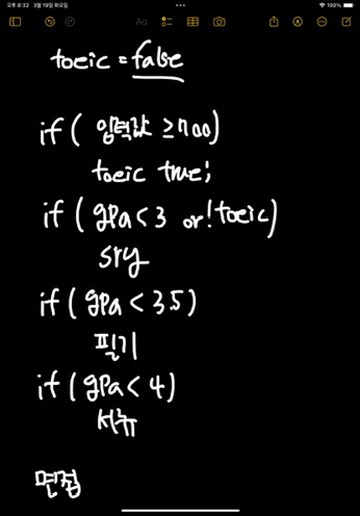 오후 8:32 3월 19일 화요일
100%
Aa
toeic = false
if ( 입력값 ≥700)
toeic true;
if ( gpa < 3 or !toeic)
sry
if ( gpa < 3.5)
필기
if ( gpa < 4)
서류
면접